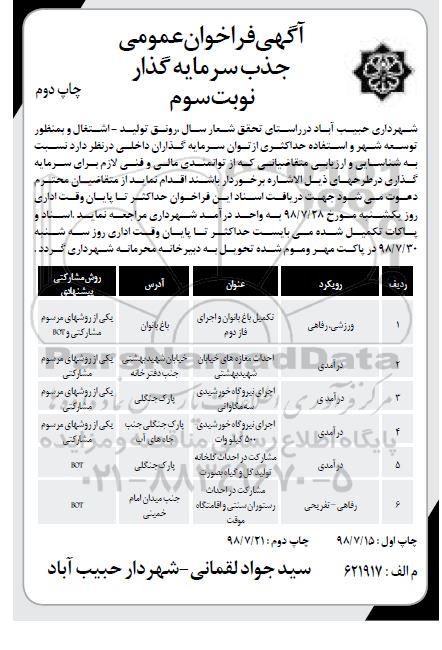 آگهی فراخوان عمومی
جذب سرمایه گذار
نوبت سوم
چاپ دوم
شهرداری حبیب آباد درراستای تحقق شعار سال ،رونق تولید - اشتغال و بمنظور
توسعه شهر و استفاده حداکثری از توان سرمایه گذاران داخلی درنظر دارد نسبت
به شناسایی و ارزیابی متقاضیانی که از توانمندی مالی و فنی لازم برای سرمایه
گذاری درطرحهای ذیل الاشاره برخوردار باشند اقدام نماید از متقاضیان محترم
دعوت می شود جهت دریافت اسناد این فراخوان حداکثر تا پایان وقت اداری
روز یکشنبه مورخ ۹۸/۷/۲۸ به واحد درآمد شهرداری مراجعه نمایند .اسناد و
پاکات تکمیل شده می بایست حداکثر تا پایان وقت اداری روز سه شنبه
۹۸/۷/۳۰ در پاکت مهر وموم شده تحویل به دبیرخانه محرمانه شهرداری گردد .
ردیف رویکرد عنوان آدرس روش مشارکتی پیشنهادی
۱ ورزشی، رفاهی تکمیل باغ بانوان و اجرای فاز دوم باغ بانوان یکی از روشهای مرسوم مشارکتی و BOT
۲ درآمدی احداث مغازه های خیابان شهیدبهشتی خیابان شهیدبهشتی جنب دفترخانه یکی از روشهای مرسوم مشارکتی
۳ درآمدی اجرای نیروگاه خورشیدی سه مگاواتی پارک جنگلی یکی از روشهای مرسوم مشارکتی
۴ درآمدی اجرای نیروگاه خورشیدی ۵۰۰ کیلو وات پارک جنگلی جنب چاه های آب یکی از روشهای مرسوم مشارکتی
۵ درآمدی مشارکت در احداث گلخانه تولید گل و گیاه بصورت پارک جنگلی BOT
۶ رفاهی - تفریحی مشارکت در احداث رستوران سنتی و اقامتگاه موقت جنب میدان امام خمینی BOT
چاپ اول : ۹۸/۷/۱۵ چاپ دوم : ۹۸/۷/۲۱
م الف : ۶۲۱۹۱۷ سید جواد لقمانی -شهردار حبیب آباد